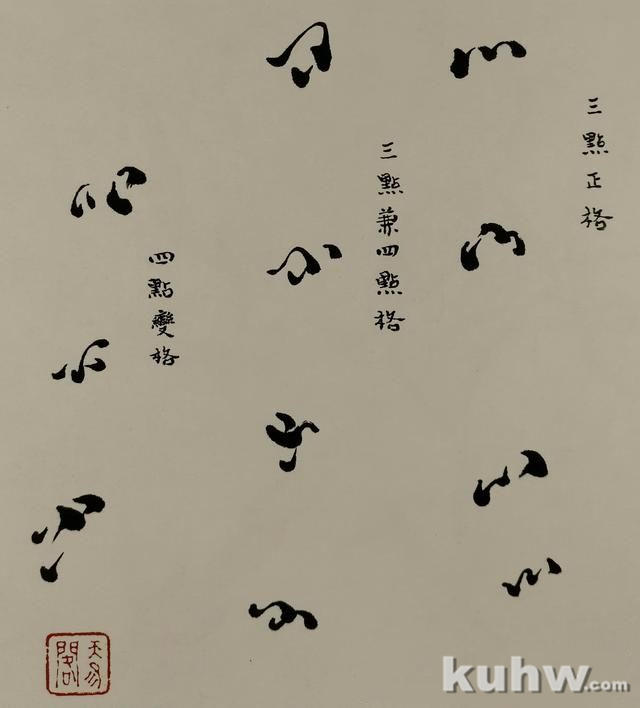 三點正格
三點兼四點格
四點變格
天易閣
kuhw.com